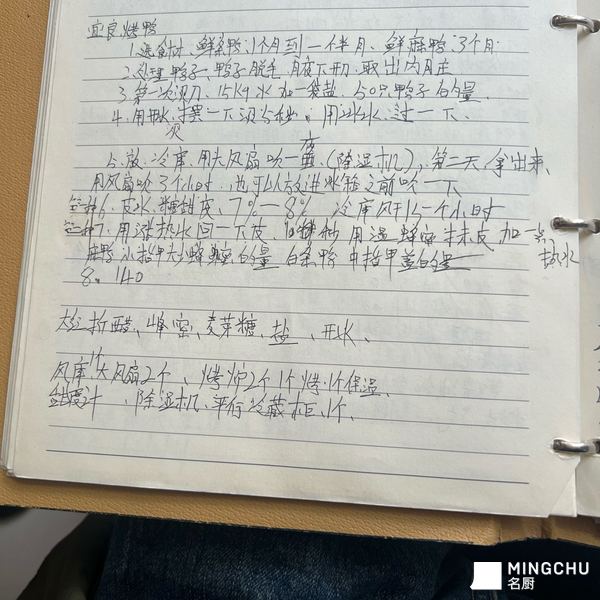 宜良烤鸭
1.选食材、鲜条鸭、1个月到一个半月、鲜麻鸭、3个月
2.处理鸭子、鸭子脱毛、月夜下刀、取出内脏
3.第一次汆刀、15kg水加一袋盐、50只鸭子的量
4.用开水烫一下汆分秒。用冰水过一下、
5.放、冷库、用大风扇吹一夜(降湿机)。第二天拿出来、
用风扇吹3个小时、也可以放进冰箱之前吹一下
6、皮水、糖甜度、7%一8%、冷库风干1一个小时
7.用涨热水回一下皮、10秒 用温蜂蜜抹皮加一点热水
麻鸭小指甲大小蜂糖的量 白条鸭中指甲盖的量
8. 140
大红折醋、峰密、麦芽糖、盐、开水、
风库1个大风扇2个、烤炉2个1个烤.1个保温、
甜度计、除湿机、平行冷藏柜、1个、
MINGCHU
名厨